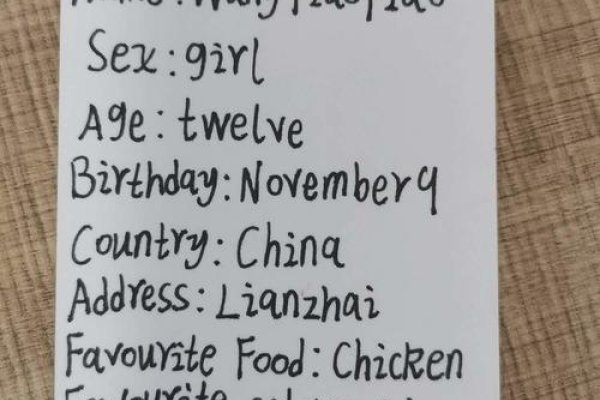 Sex: girl
Age: twelve
Birthday: November 9
Country: China
Address: Lianzhai
Favourite Food: Chicken
Favourite